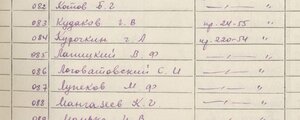 082 Котов Б. Г — " — "
083 Кудаков Г. В пр. 24-55 "
084 Курочкин Г. А пр. 220-54 "
085 Лапицкий В. Ф — " — "
086 Логоватовский С. И — " — "
087 Лунеков М. Ф — " — "
088 Мангазеев К. Г — " — "
089 — " — "